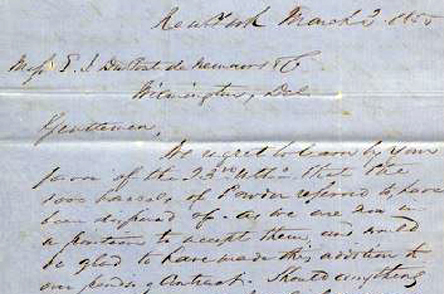 New York March 2 1855
Messrs E. I. DuPont de Nemours & Co
Wilmington, Del
Gentlemen,
We regret to learn by your
favor of the 23rd ulto that the
barrels of Powder referred to, have
been disposed of. As we are now in
a position to accept them, and would
be glad to have made this addition to
our pending Contract. Should anything